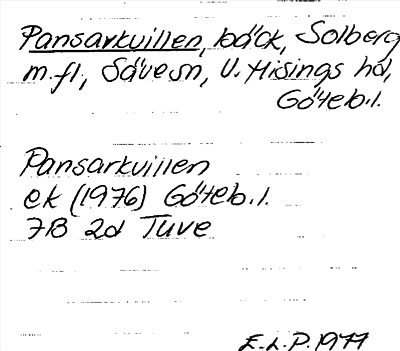 Pansarkvillen, bäck, Solberg
m.fl, Säve sn, V. Hisings hd,
Göteb.l.
Pansarkvillen
ek (1976) Göteb.l.
7B 2d Tuve
E.L.P. 1977